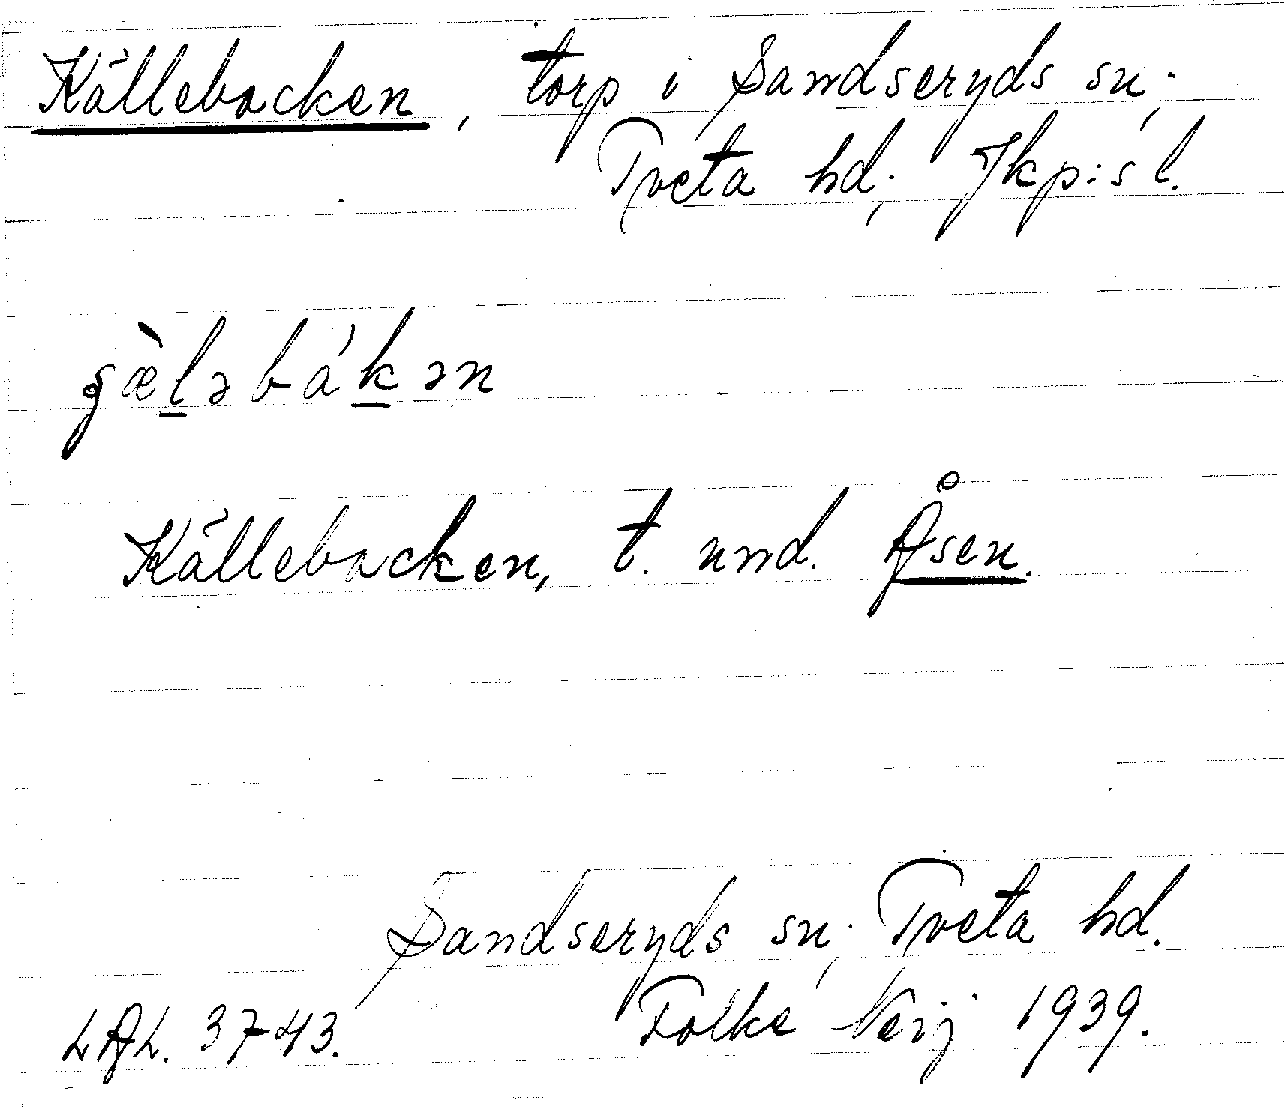 Källebacken, torp i Sandseryds sn;
Tveta hd; Jkp:s l.
gæ̀l̲əbák̲ən
Källebacken, t. und. Åsen.
Sandseryds sn; Tveta hd.
LAL. 3743. Folke 1939.